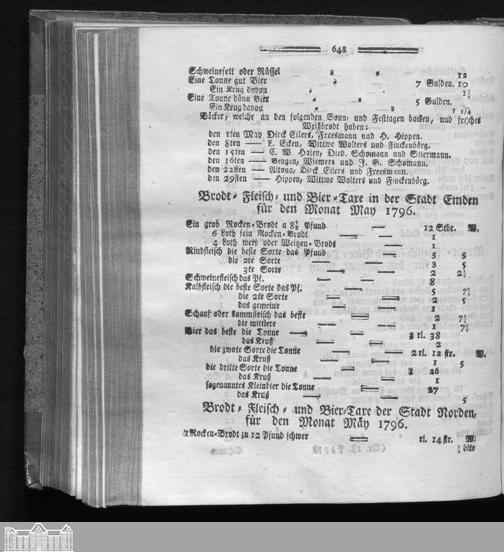 648
Schweinefett oder Nüssel 12
Eine Tonne gut Bier 7 Gulden. 10
Ein Krug davon 1½
Eine Tonne dünn Bier 5 Gulden.
Ein Krug davon 1 1/4
Bäcker, welche an den folgenden Sonn- und Festtagen backen, und frisches
Weißbrodt haben:
den 1ten May Dirck Eilers, Freesmann und H. Hippen.
den 8ten — L. Ecken, Wittwe Wolters und Finckenbörg.
den 15ten — C. W. Hajen, Died. Schomann und Stiermann.
den 16ten — Bengen, Wiemers und J. G. Schomann.
den 22sten — Altona, Dirck Eilers und Freesmann.
den 29sten — Hippen, Wittwe Wolters und Finckenbörg.
Brodt- Fleisch- und Bier-Taxe in der Stadt Emden
für den Monat May 1796.
Ein grob Rocken-Brodt a 8½ Pfund 12 Stbr. W.
6 Loth fein Rocken-Brodt 1
4 Loth weiß oder Weitzen-Brodt 1
Rindfleisch die beste Sorte das Pfund 5 5
die 2te Sorte 3 5
3te Sorte 2 2½
Schweinefleisch das Pf. 8
Kalbfleisch die beste Sorte das Pf. 5 7½
die 2te Sorte 2 5
das gemeine 1
Schaaf- oder Lammfleisch das beste 2 7½
die mittlere 1 7½
Bier das beste die Tonne 3 rl. 38
das Kruß 2
die zwote Sorte die Tonne 2 rl. 12 str. W.
das Kruß 1 5
die dritte Sorte die Tonne 1 26
das Kruß 1
sogenanntes Kleinbier die Tonne 27
das Kruß 5
Brodt- Fleisch- und Bier-Taxe der Stadt Norden,
für den Monat May 1796.
1 Rocken-Brodt zu 12 Pfund schwer rl. 14 str. W.
½ dito